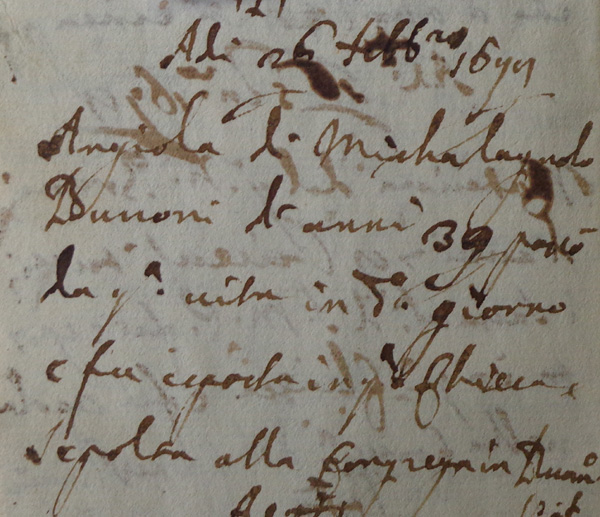 Adi 26 febb.ro 1699
Angiola di Michalagnolo
Bunoni di anni 39 passò
da q.a uita in d.o giorno
e fu esposta in q.a Chiesa e
sepolta alla Congrega in